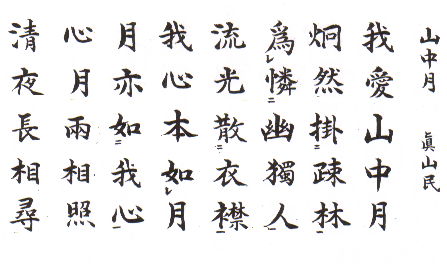 山中月　眞山民
我愛山中月
炯然掛㆓疎林㆒
爲㆑憐㆓幽獨人㆒
流光散㆓衣襟㆒
我心本如㆑月
月亦如㆓我心㆒
心月兩相照
清夜長相尋